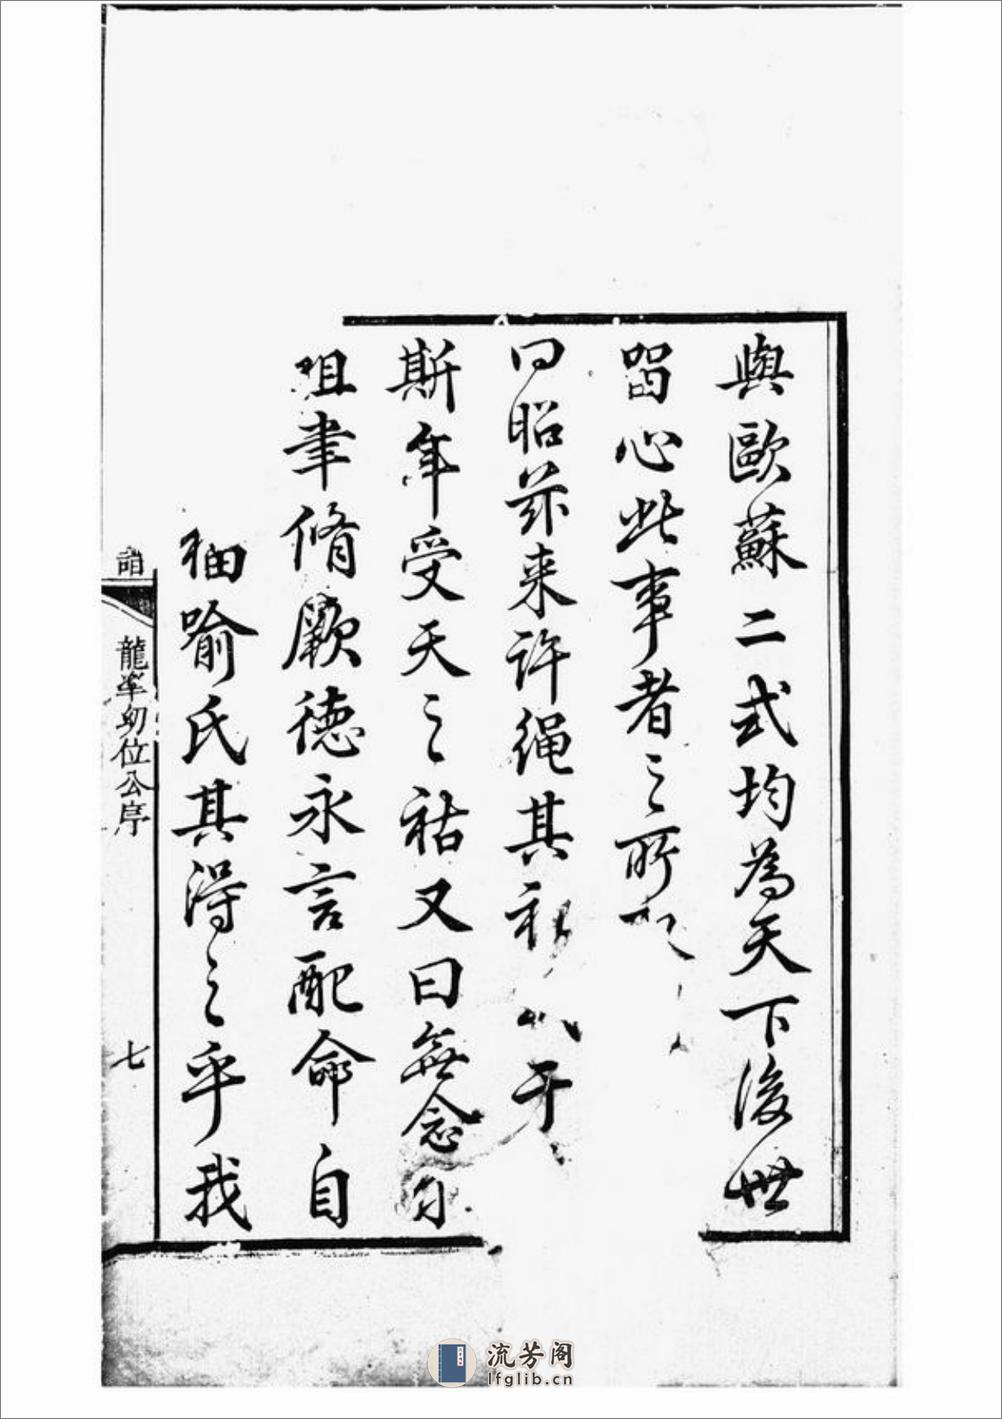 與歐蘇二式均為天下後世
留心此事者之所
曰昭茲来許繩其 于
斯年受天之祜又曰無念
祖聿脩厥德永言配命自
䄂喻氏其得之乎我
龍 幼位公序
七
流芳阁
lfglib.cn